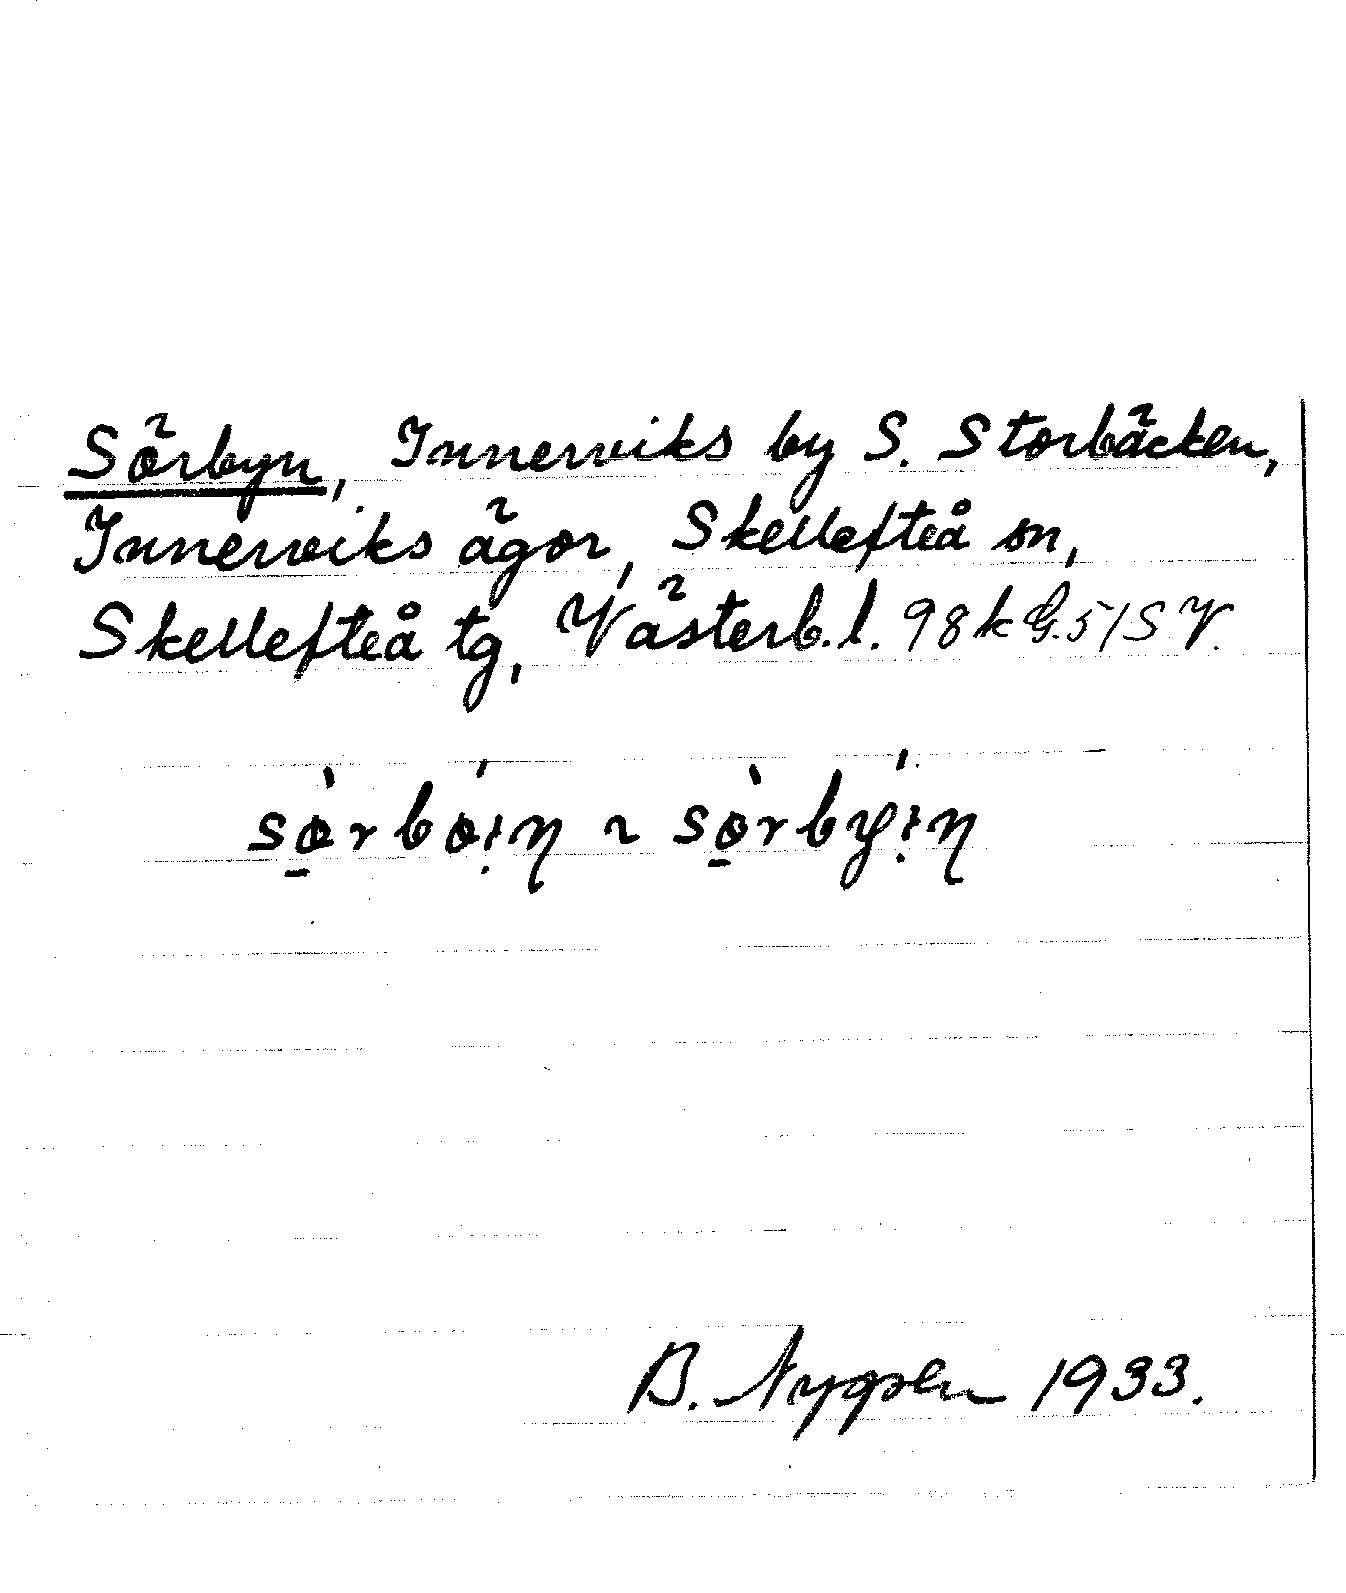 Sörbyn, Innerviks by S. Storbäcken,
Innerviks ägor, Skellefteå sn,
Skellefteå tg, Västerb. l. 98 k G. 5/S V.
sø̱̀rbǿi̥ŋ ~ sø̱̀rbýi̥ŋ
B. Nygren 1933.